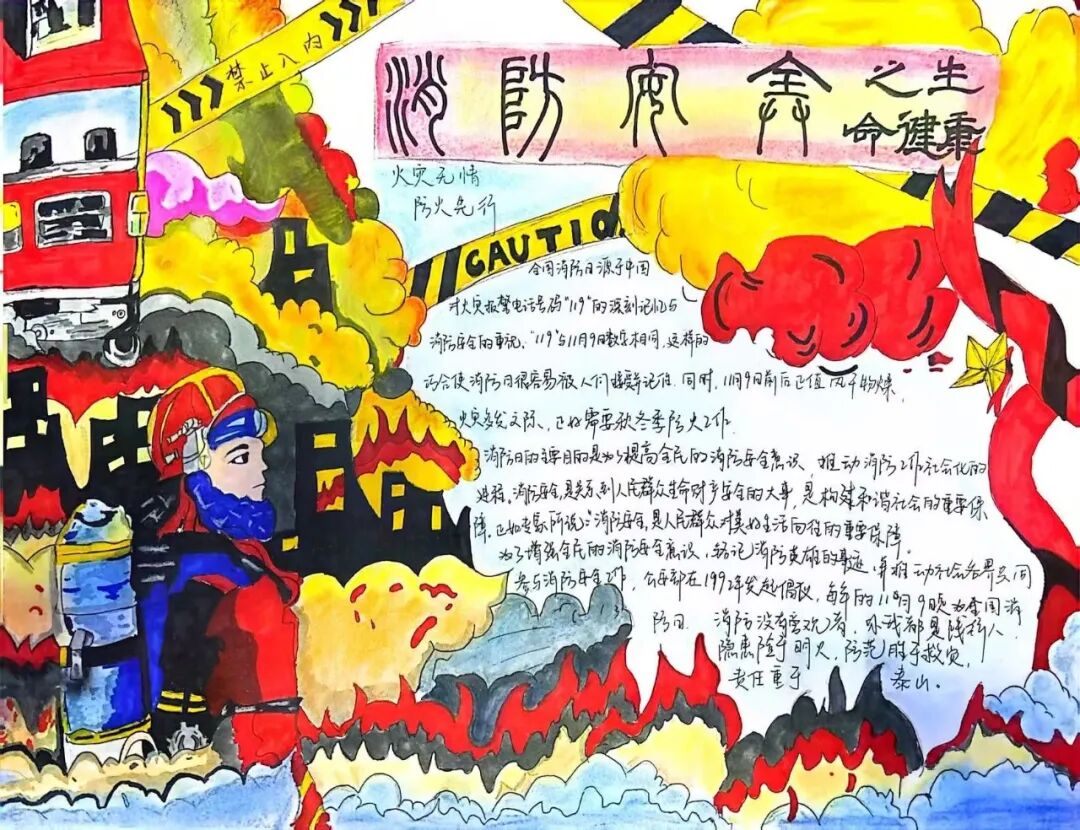 禁止入内
消防安全
之生
命健康
火灾无情
防火先行
CAUTIO
全国消防日源于中国
对火灾报警电话号码"119"的深刻记忆与
消防安全的重视、"119"与11月9日数字相同,这样的
巧合使消防日很容易被人们接受并记住.同时,11月9日前后正值风干物燥、
火灾多发之际、正好需要秋冬季防火工作.
消防日的主要目的是为了提高全民的消防安全意识、推动消防工作社会化的
进程,消防安全,是关系到人民群众生命财产安全的大事,是构建和谐社会的重要保
障,正如专家所说:"消防安全,是人民群众对美好生活向往的重要保障.
为了增强全民的消防安全意识、铭记消防英雄的事迹,并推动社会各界共同
参与消防安全工作,公安部在1992年发起倡议,每年的11月9 为全国消
防日. 消防没有旁观者,你我都是践行人.
隐患险于明火,防范胜于救灾,
责任重于 泰山.